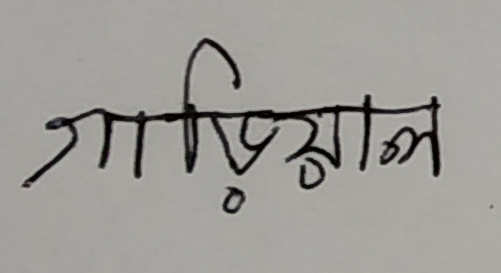 গাড়িয়াল